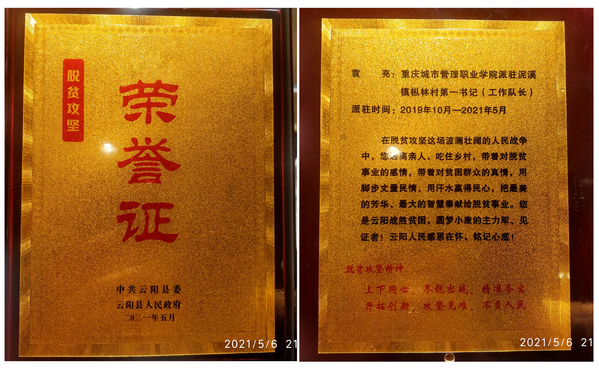 脱贫攻坚
荣誉证
中共云阳县委
云阳县人民政府
二〇二一年五月
2021/5/6 21
袁 亮：重庆城市管理职业学院派驻泥溪
镇枞林村第一书记（工作队长）
派驻时间：2019年10月—2021年5月
在脱贫攻坚这场波澜壮阔的人民战争
中，您远离亲人、吃住乡村，带着对脱贫
事业的感情，带着对贫困群众的真情，用
脚步丈量民情，用汗水赢得民心，把最美
的芳华、最大的智慧奉献给脱贫事业。您
是云阳战胜贫困、圆梦小康的主力军、见
证者！云阳人民感恩在怀、铭记心底！
脱贫攻坚精神：
上下同心 尽锐出战 精准务实
开拓创新 攻坚克难 不负人民
2021/5/6 21